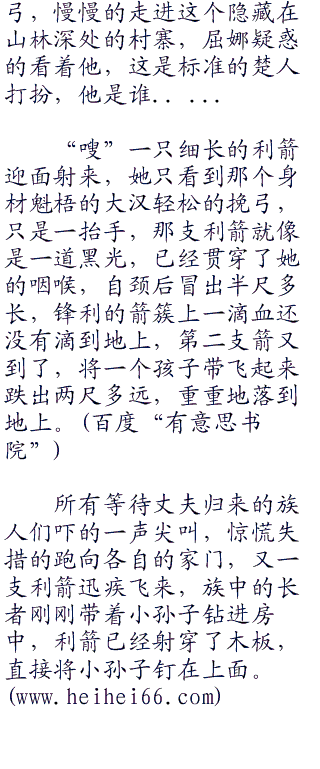 弓，慢慢的走进这个隐藏在
山林深处的村寨，屈娜疑惑
的看着他，这是标准的楚人
打扮，他是谁.. ...
“嗖”一只细长的利箭
迎面射来，她只看到那个身
材魁梧的大汉轻松的挽弓，
只是一抬手，那支利箭就像
是一道黑光，已经贯穿了她
的咽喉，自颈后冒出半尺多
长，锋利的箭簇上一滴血还
没有滴到地上，第二支箭又
到了，将一个孩子带飞起来
跌出两尺多远，重重地落到
地上。(百度“有意思书
院”)
所有等待丈夫归来的族
人们吓的一声尖叫，惊慌失
措的跑向各自的家门，又一
支利箭迅疾飞来，族中的长
者刚刚带着小孙子钻进房
中，利箭已经射穿了木板，
直接将小孙子钉在上面。
(www.heihei66.com)